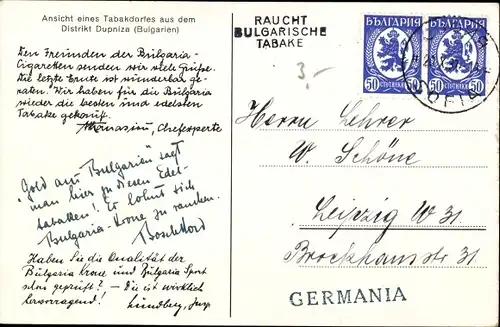 Ansicht eines Tabakdorfes aus dem
Distrikt Dupniza (Bulgarien)
Den Freunden der Bulgaria-
Cigaretten senden wir viele Grüsse.
Die letzte Ernte ist wunderbar ge-
raten. Wir haben für die Bulgaria
wieder die besten und edelsten
Tabake gekauft.
Athanasiu, Chefexperte
"Gold aus Bulgarien" sagt
man hier zu diesen Edel-
tabaken! Es lohnt sich
Bulgaria-Krone zu rauchen.
Haben Sie die Qualität der
Bulgaria Krone und Bulgaria Sport
schon geprüft? - Die ist wirklich
hervorragend! Lundberg,
RAUCHT
BULGARISCHE
TABAKE
3.-
БЪЛГАРИЯ БЪЛГАРИЯ
50 СТОТИНКИ 50 50 СТОТИНКИ 50
SOFIA
Herrn Lehrer
W. Schöne
Leipzig W 31
Brockhausstr 31
GERMANIA